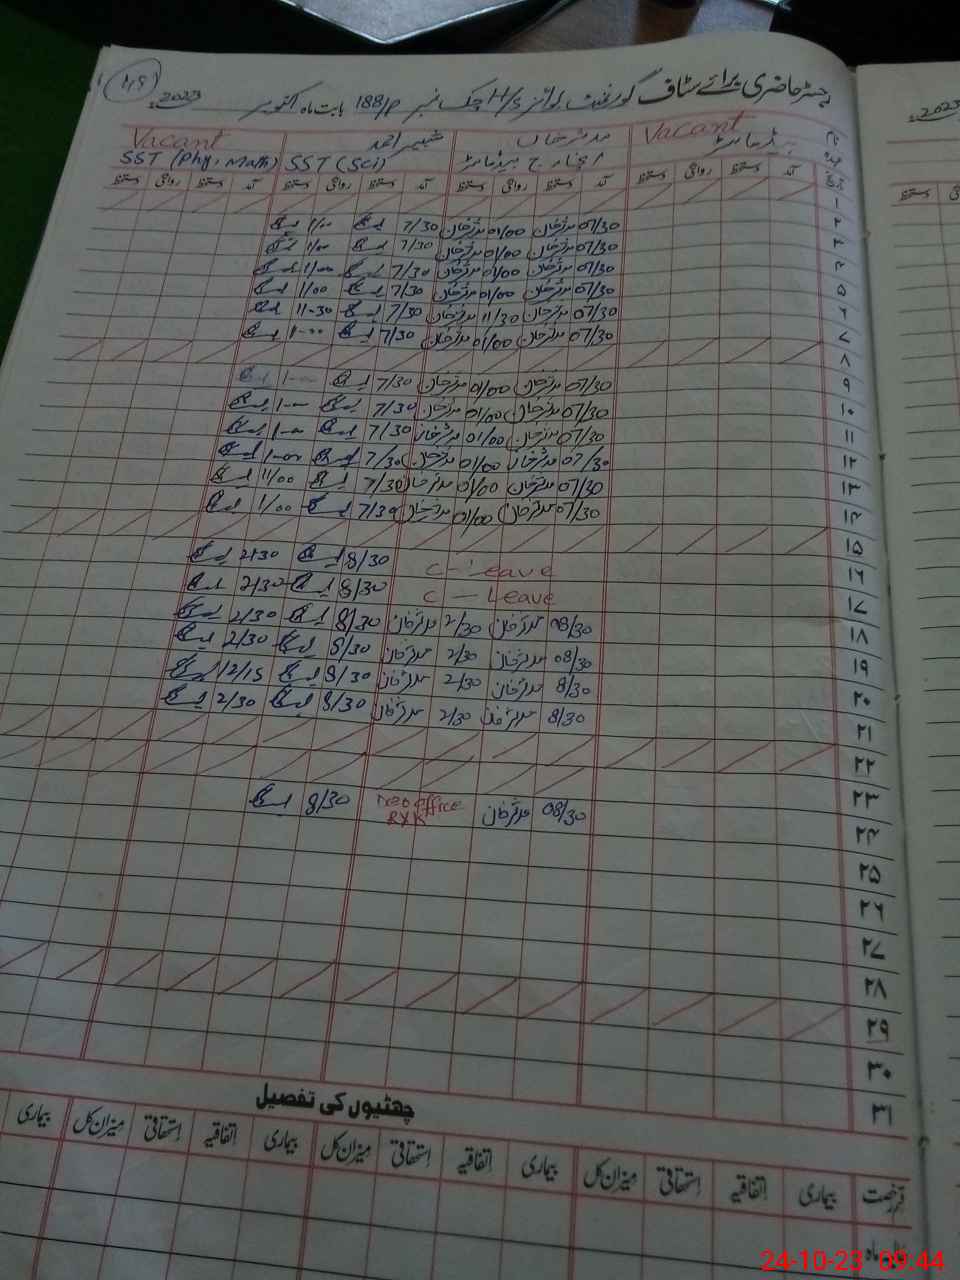 45
رجسٹر حاضری برائے سٹاف گورنمنٹ بوائز H/S چک نمبر 188/P بابت ماہ اکتوبر 2023ء
Vacant مدثر خان شمیم احمد Vacant
ہیڈ ماسٹر انچارج ہیڈ ماسٹر SST (Sci) SST (Phy, Math)
آمد دستخط روانگی دستخط آمد دستخط روانگی دستخط آمد دستخط روانگی دستخط آمد دستخط روانگی دستخط
۱
۲ 07/30 مدثر خان 01/00 مدثر خان 7/30 1/00
۳ 07/30 مدثر خان 01/00 مدثر خان 7/30 1/00
۴ 07/30 مدثر خان 01/00 مدثر خان 7/30 1/00
۵ 07/30 مدثر خان 01/00 مدثر خان 7/30 1/00
۶ 07/30 مدثر خان 11/30 مدثر خان 7/30 11-30
۷ 07/30 مدثر خان 01/00 مدثر خان 7/30 1-00
۸
۹ 07/30 مدثر خان 01/00 مدثر خان 7/30 1-00
۱۰ 07/30 مدثر خان 01/00 مدثر خان 7/30 1-00
۱۱ 07/30 مدثر خان 01/00 مدثر خان 7/30 1-00
۱۲ 07/30 مدثر خان 01/00 مدثر خان 7/30 1-00
۱۳ 07/30 مدثر خان 01/00 مدثر خان 7/30 11/00
۱۴ 07/30 مدثر خان 01/00 مدثر خان 7/30 1/00
۱۵
۱۶ C-Leave 8/30 2/30
۱۷ C-Leave 8/30 2/30
۱۸ 08/30 مدثر خان 2/30 مدثر خان 8/30 2/30
۱۹ 08/30 مدثر خان 2/30 مدثر خان 8/30 2/30
۲۰ 8/30 مدثر خان 2/30 مدثر خان 8/30 12/15
۲۱ 8/30 مدثر خان 2/30 مدثر خان 8/30 2/30
۲۲
۲۳
۲۴ 08/30 مدثر خان office RYK 8/30
۲۵
۲۶
۲۷
۲۸
۲۹
۳۰
۳۱
چھٹیوں کی تفصیل
رخصت بیماری اتفاقیہ استحقاقی میزان کل بیماری اتفاقیہ استحقاقی میزان کل بیماری اتفاقیہ استحقاقی میزان کل بیماری
ماہ
24-10-23 09:44